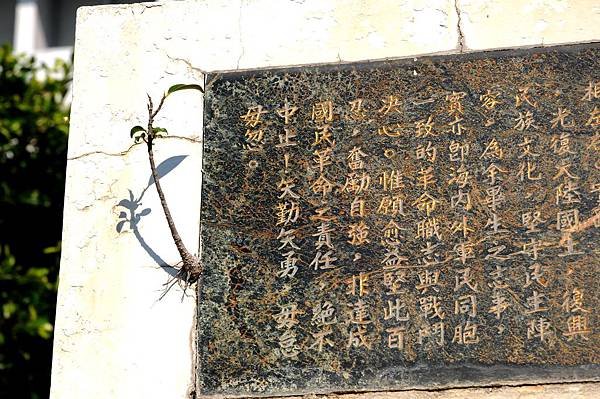 ，光復大陸國土，復興
民族文化，堅守民主陣
容，為余畢生之志事，
實亦即海內外軍民同胞
一致的革命職志與戰鬥
決心。惟願愈益堅此百
忍，奮勵自強，非達成
國民革命之責任，絕不
中止！矢勤矢勇，毋怠
毋忽。